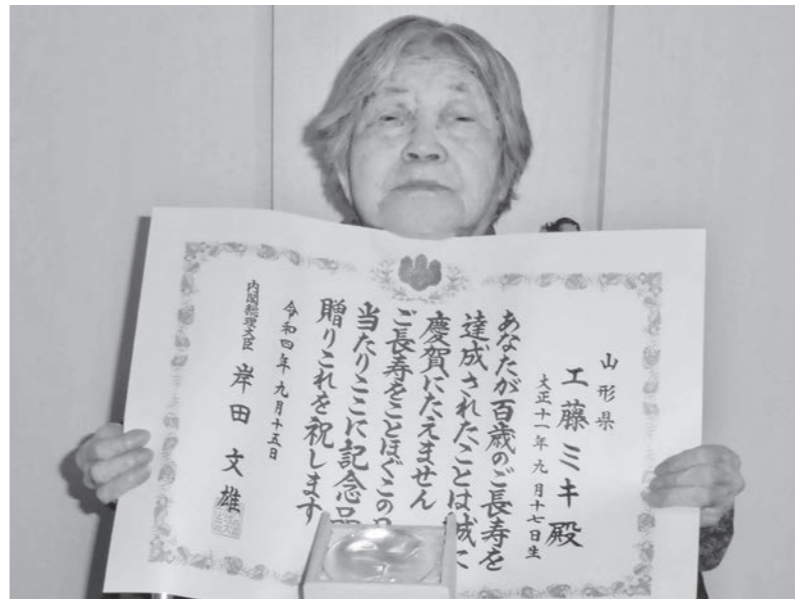 山形県
工藤ミキ殿
大正十一年九月十七日生
あなたが百歳のご長寿を
達成されたことは誠に
慶賀にたえません
ご長寿をことほぐこの
当たりここに記念品
贈りこれを祝します
令和四年九月十五日
内閣総理大臣 岸田文雄